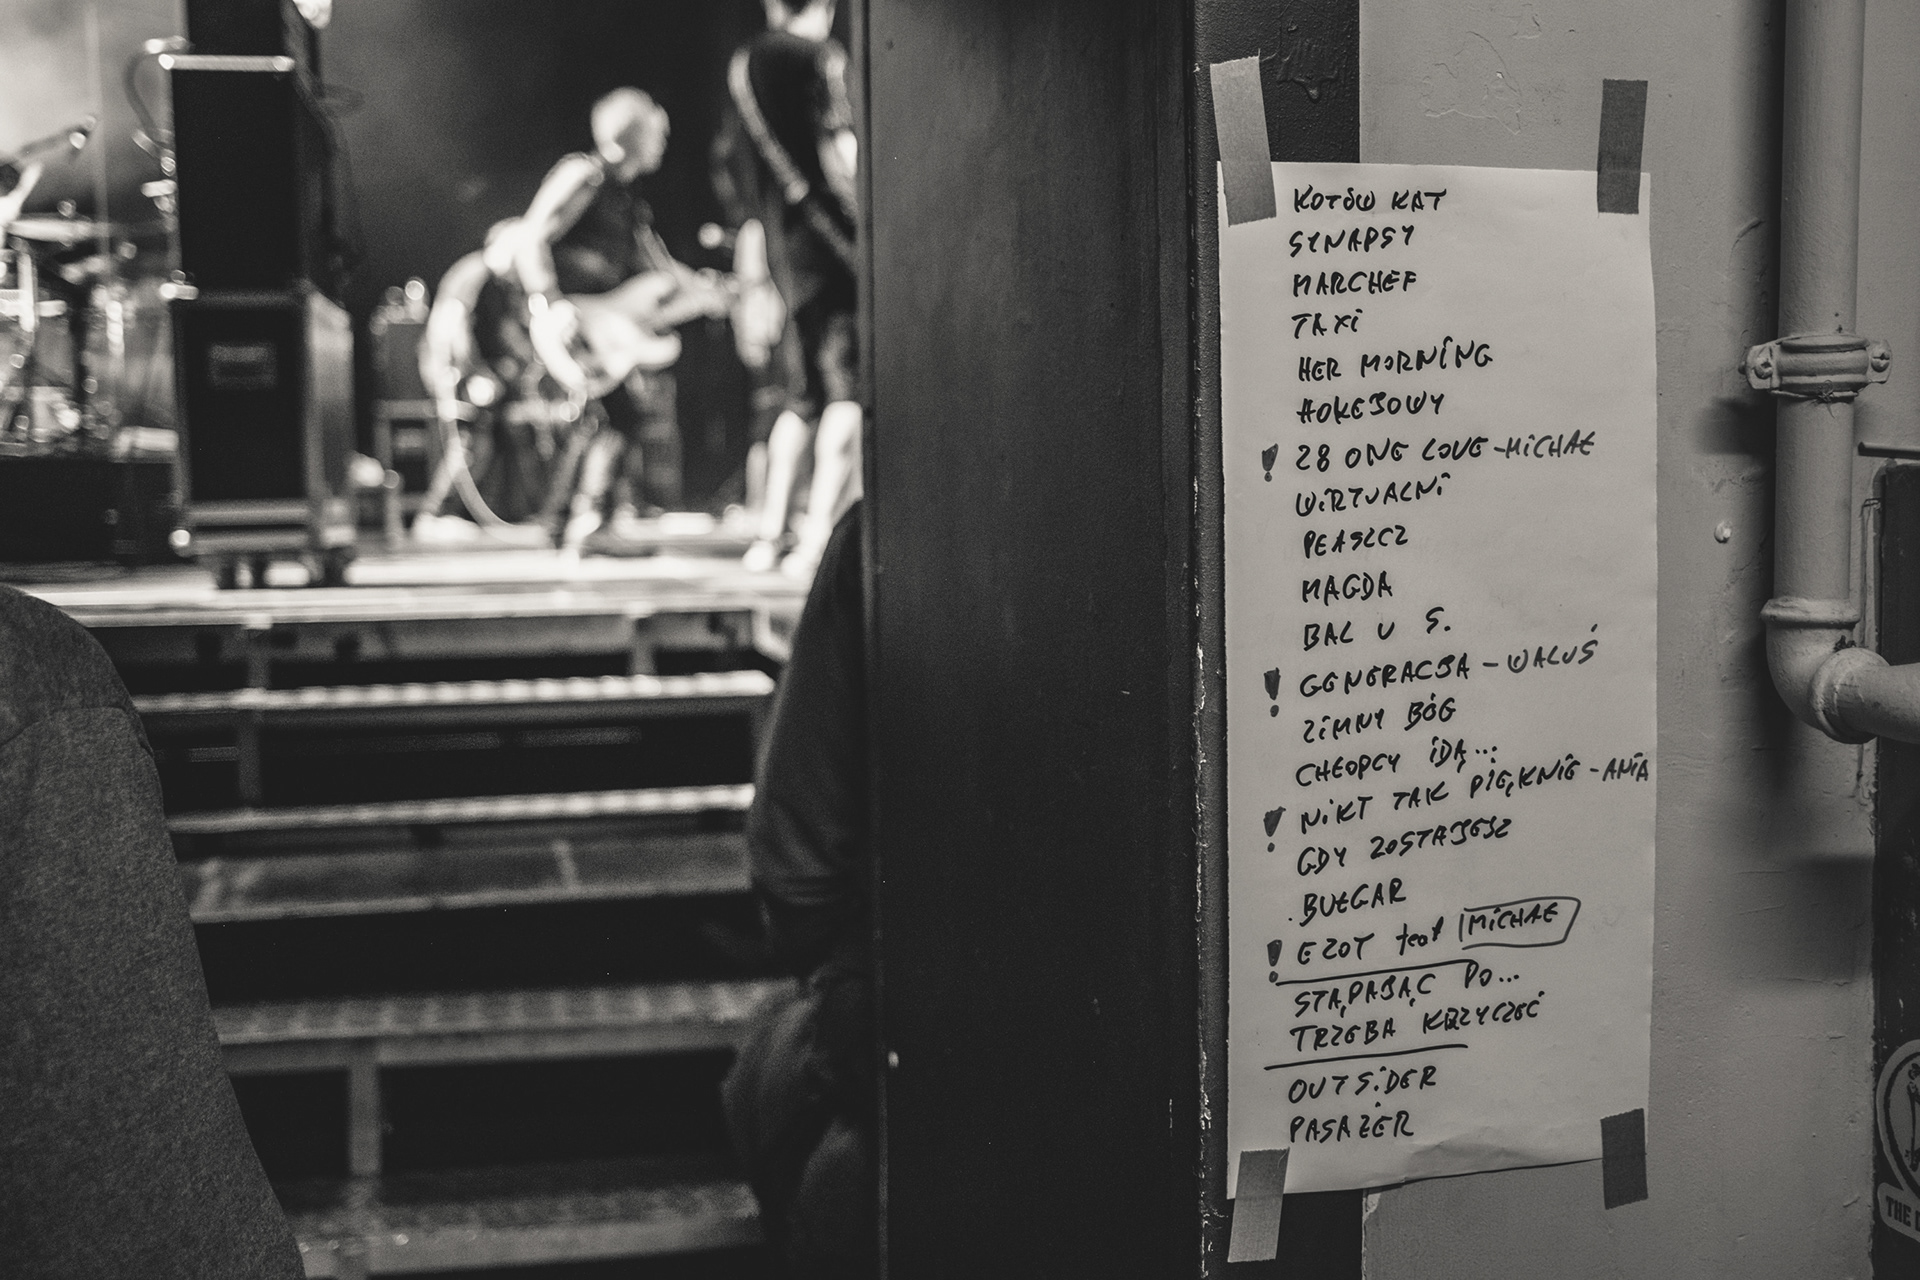 KOTÓW KAT
SYNAPSY
MARCHEF
TAXI
HER MORNING
HOKEJOWY
! 28 ONE LOVE - MICHAŁ
WIRTUALNI
PŁASZCZ
MAGDA
BAL U S.
! GENERACJA - WALUŚ
ZIMNY BÓG
CHŁOPCY IDĄ...
! NIKT TAK PIĘKNIE - ANIA
GDY ZOSTAJESZ
BUŁGAR
! EZOT feat MICHAŁ
STĄPAJĄC PO...
TRZEBA KRZYCZEĆ
OUTSIDER
PASAŻER
THE